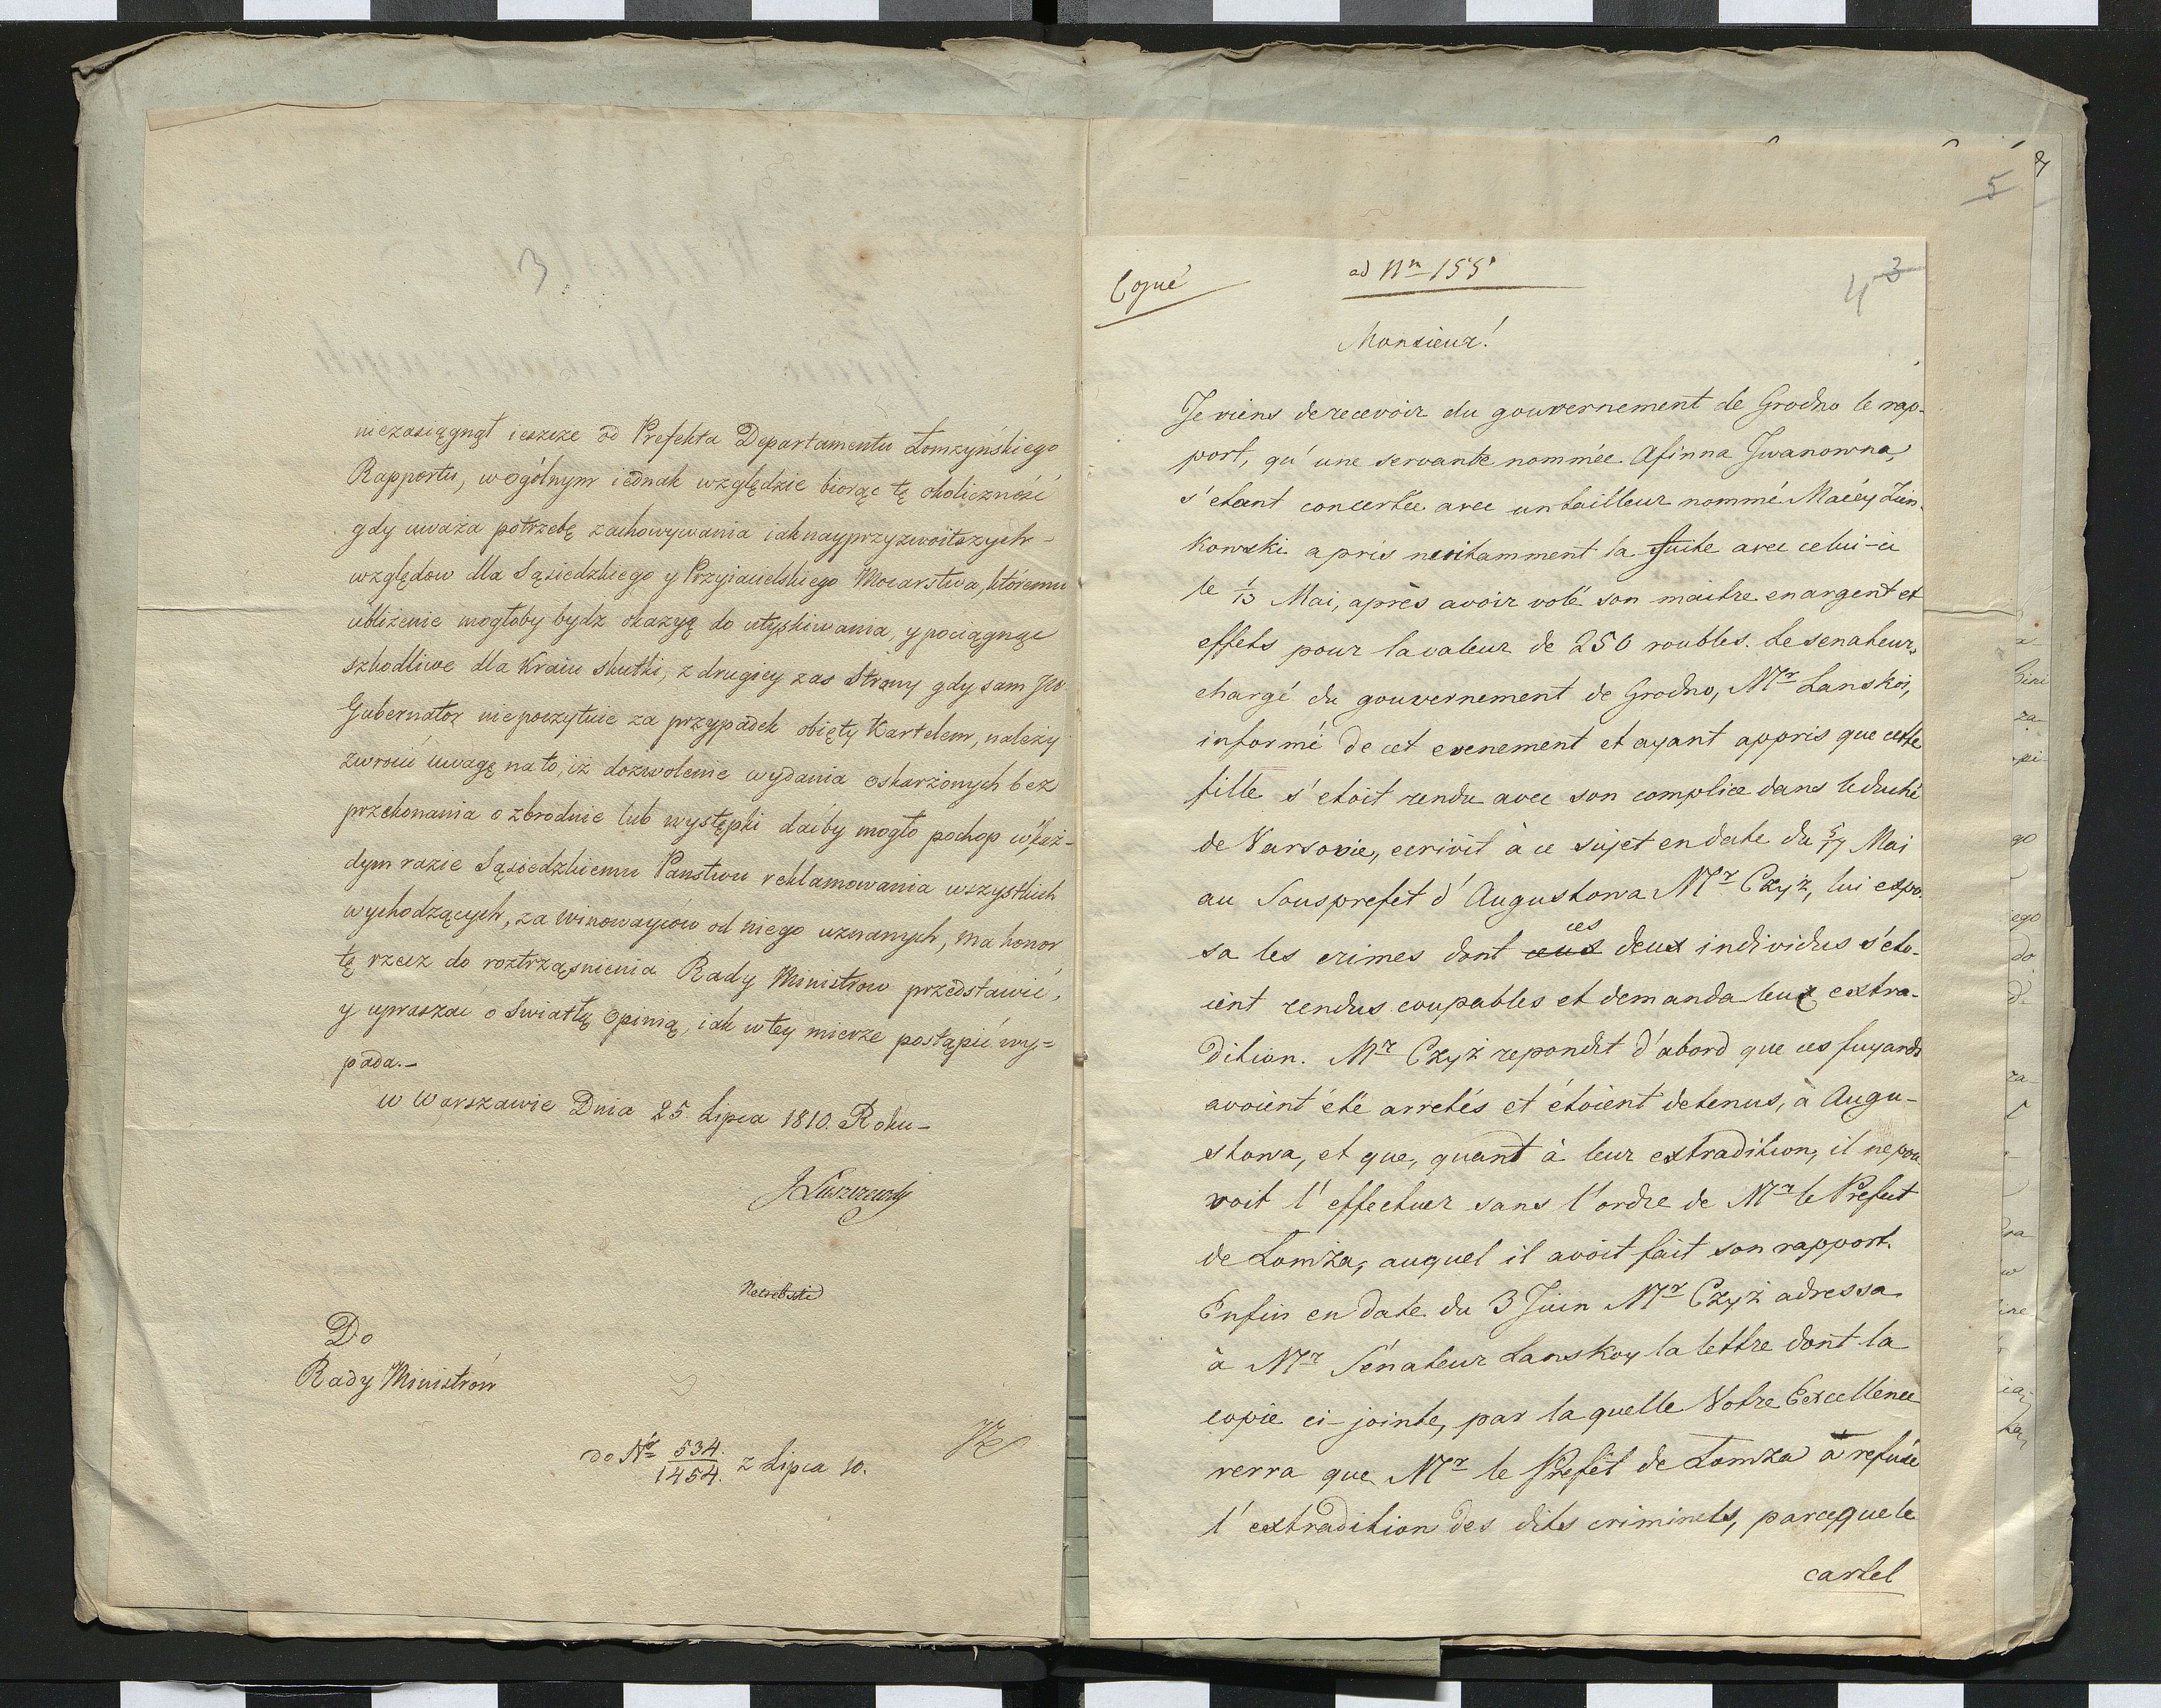 3
niezasiągnął ieszcze od Prefekta Departamentu Łomzyńskiego
Rapportu, w ogólnym iednak względzie biorąc tę okoliczność
gdy uważa potrzebę zachowywania iaknayprzyzwoitszych -
względow dla Sąsiedzkiego y Przyiacielskiego Mocarstwa, któremu
ubliżenie mogłoby bydz okazyą do utyskiwania, y pociągnąć
szkodliwe dla Kraiu skutki, z drugiey zas Strony gdy sam JW
Gubernator niepoczytuie za przypadek obięty Kartelem, należy
zwrocić uwagę na to, iż dozwolenie wydania oskarżonych bez
przekonania o zbrodnie lub występki daćby mogło pochop w każ-
dym razie Sąsiedzkiemu Panstwu reklamowania wszystkich
wychodzących, za winowayców od niego uznanych, ma honor
tę rzecz do roztrząsnienia Rady Ministrow przedstawić,
y upraszać o Swiatłą Opinią, iak w tey mierze postąpić wy=
pada.-
w Warszawie Dnia 25 Lipca 1810. Roku -
J Łuszczewski
Do
Rady Ministrów
do Nr 534./1454. z Lipca 10.
5
4 3
Copié
ad Nm 155
Monsieur!
Je viens de recevoir du gouvernement de Grodno le rap-
port, qu'une servante nommée Afinna Jwanowna,
s'etant concertée avec un tailleur nommé Maćey Zün-
kowski a pris nuitamment la fuite avec celui-ci
le 1/13 Mai, après avoir volé son maitre en argent et
effets pour la valeur de 250 roubles. Le senateur,
chargé du gouvernement de Grodno, Mr Lanskoi,
informé de cet evenement et ayant appris que cette
fille s'etoit rendu avec son complice dans le duché
de Varsovie, ecrivit à ce sujet en date du 5/17 Mai
au Sousprefet d'Augustowa Mr Czyż, lui expo-
sa les crimes dont ces deux individus s'eto-
ient rendus coupables et demanda leur extra-
dition. Mr Czyż repondit d'abord que ces fuyards
avoient été arretés et étoient detenus, à Augu-
stowa, et que, quant à leur extradition, il ne pou-
voit l'effectuer sans l'ordre de Mr le Prefect
de Lomża, auquel il avoit fait son rapport.
Enfin en date du 3 Juin Mr Czyż adressa
à Mr Sénateur Lanskoy la lettre dont la
copie ci-jointe, par laquelle Votre Excellence
verra que Mr le Prefét de Lomża a refusé
l'extradition des dits criminels, parceque le
cartel